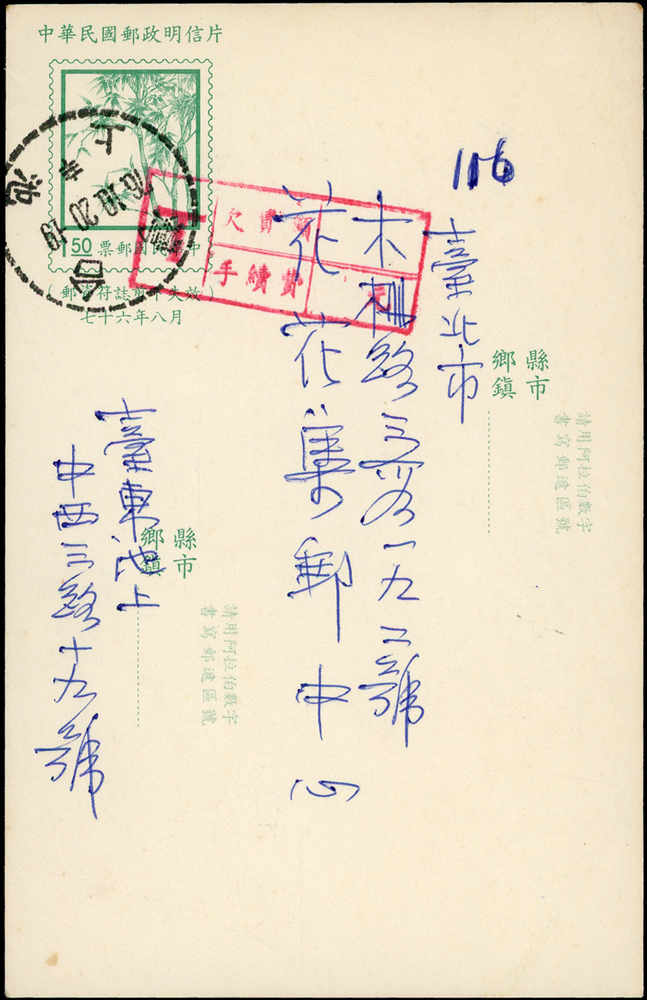 中華民國郵政明信片
150 票郵國民華中
七十六年八月
欠費
手續費
元
池上
76.10.20.19
116
縣市
鄉鎮
請用阿拉伯數字
書寫郵遞區號
臺北市
木柵路三段一九二號
花花集郵中心
縣市
鄉鎮
請用阿拉伯數字
書寫郵遞區號
臺東池上
中西三路十九號